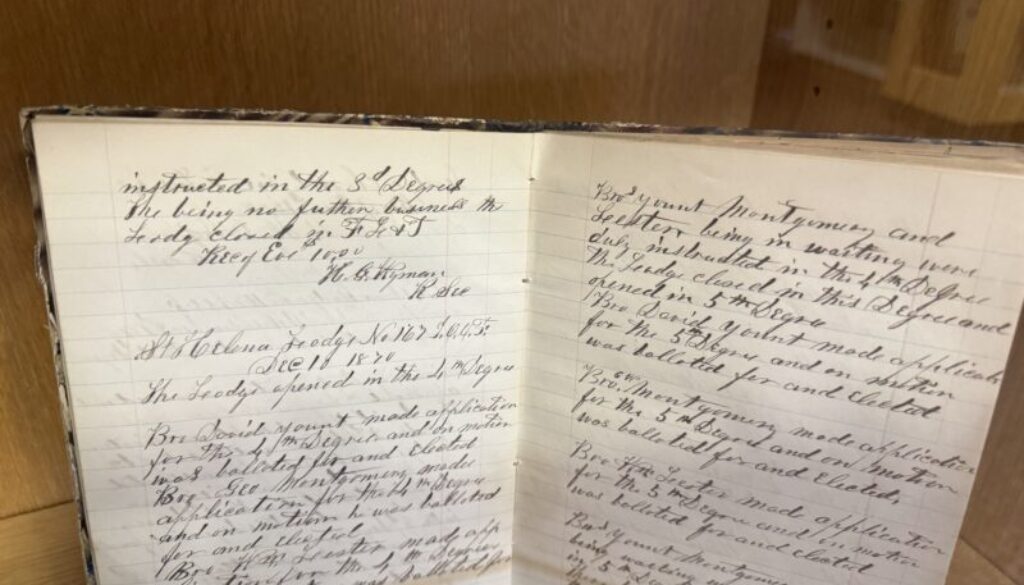 instructed in the 3d Degree
The being no futher business the
Lodg closed in F L & T
Rec of Eve 10.00
H. G. Hyman
R Sec
St Helena Lodge No 167 I.O.O.F.
Dec 10 1870
The Lodge opened in the 4th Degree
Bro David Yount made application
for the 4th Degree and on motion
was balloted for and elected
Bro Geo Montgomery made
application for the 4th Degree
and on motion he was balloted
for and elected
Bro Wm Leester made app
for the 4th Degree
was balloted for
Bros Yount Montgomery and
Leester being in waiting were
duly instructed in the 4th Degree
The Lodge closed in this Degree and
opened in 5th Degree
Bro David Yount made applicati
for the 5th Degree and on motion
was balloted for and elected
Bro. Geo. Montgomery made application
for the 5th Degree and on motion
was balloted for and elected,
Bro Wm Leester made application
for the 5th Degree and on motion
was balloted for and elected
Bros Yount Montgomery
being waiting
in 5th Degree